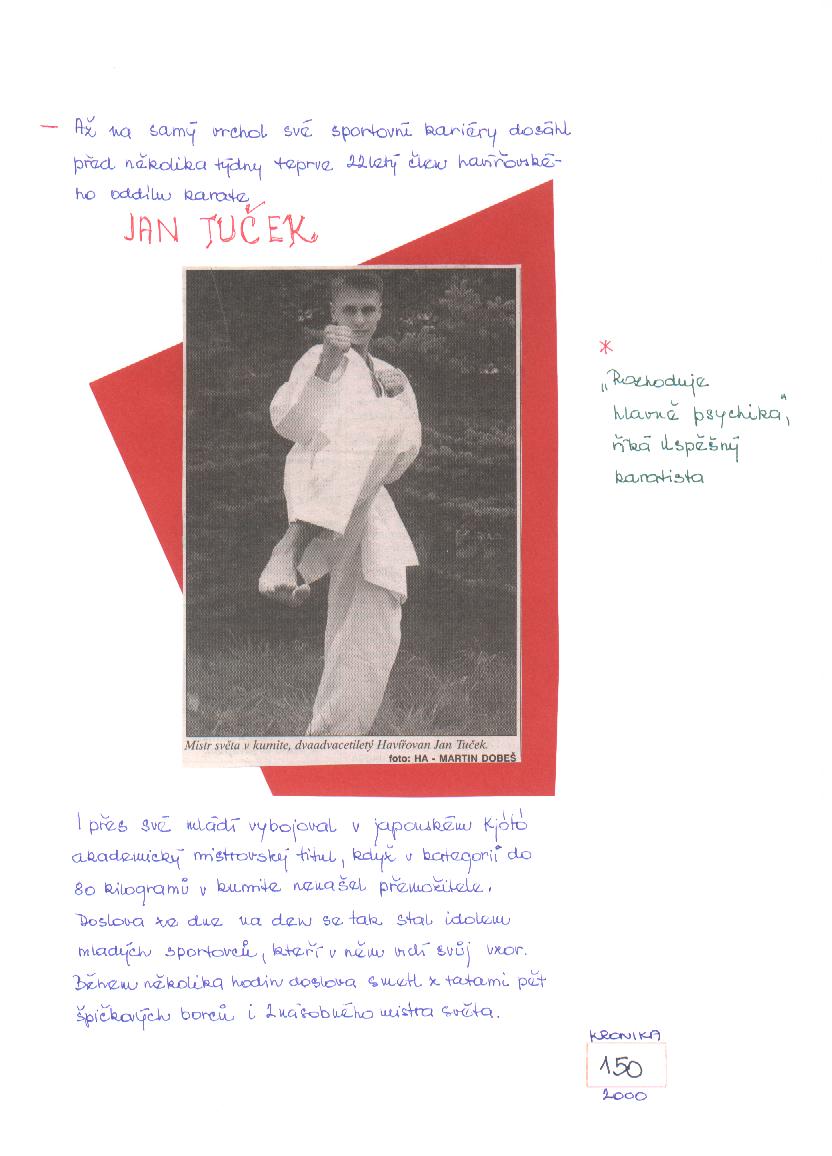 – Až na samý vrchol své sportovní kariéry dosáhl
před několika týdny teprve 22letý člen havířovské-
ho oddílu karate
JAN TUČEK
*
„Rozhoduje
hlavně psychika",
říká úspěšný
karatista
Mistr světa v kumite, dvaadvacetiletý Havířovan Jan Tuček.
foto: HA - MARTIN DOBEŠ
I přes své mládí vybojoval v japonském Kjótó
akademický mistrovský titul, když v kategorii do
80 kilogramů v kumite nenašel přemožitele.
Doslova ze dne na den se tak stal idolem
mladých sportovců, kteří v něm vidí svůj vzor.
Během několika hodin doslova smetl z tatami pět
špičkových borců i 2násobného mistra světa.
KRONIKA
150
2000